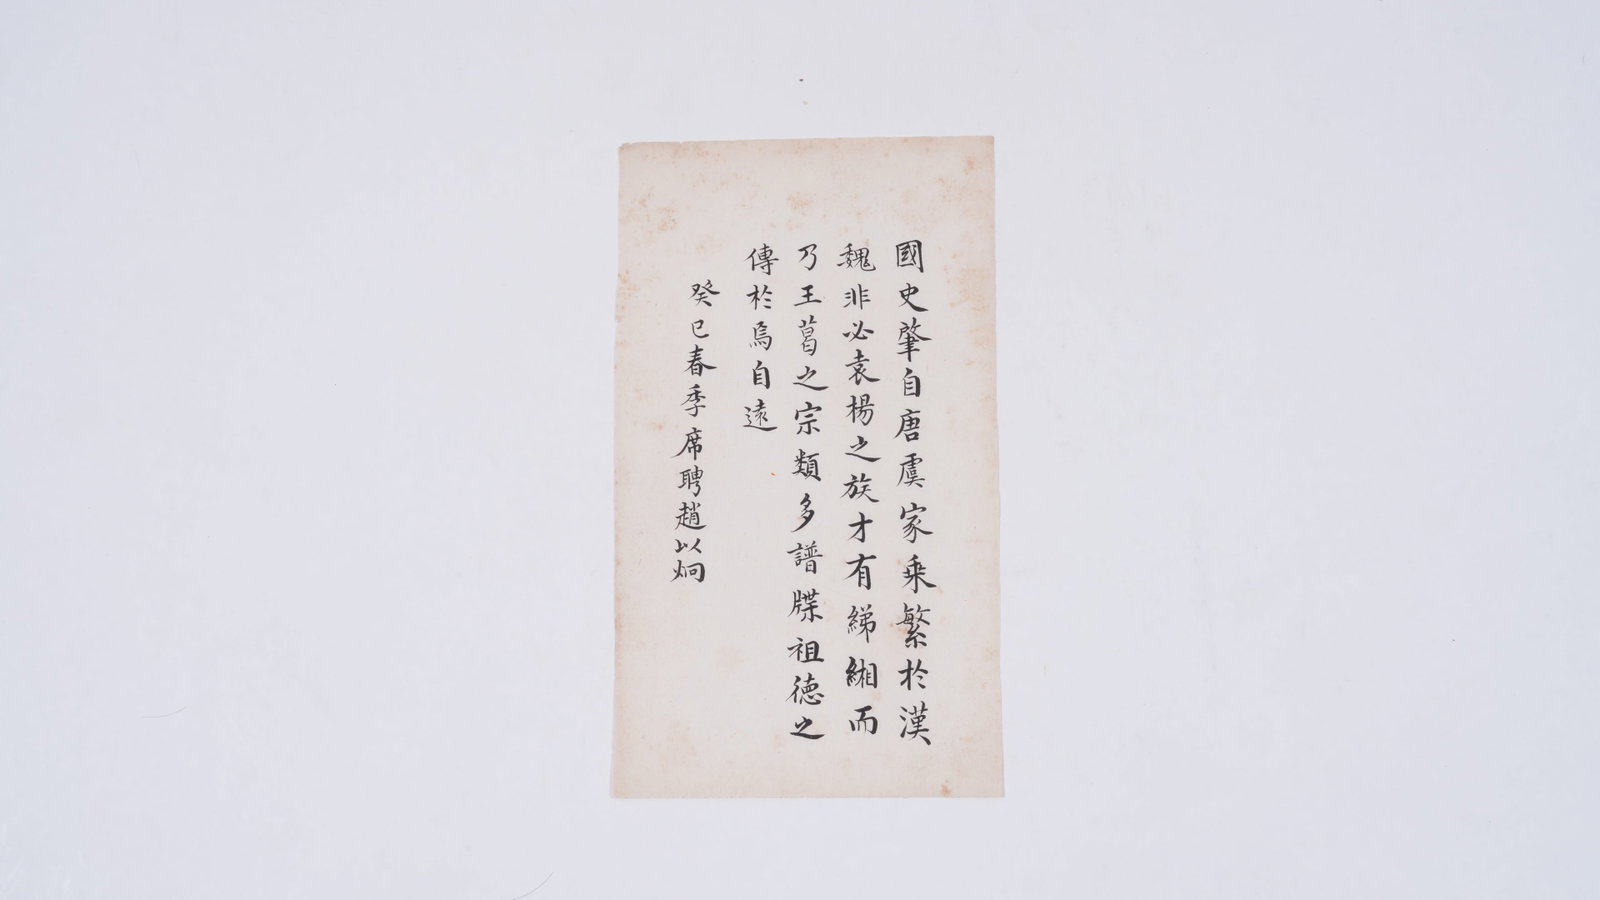 國史肇自唐虞家乘繁於漢
魏非必袁楊之族才有綈緗而
乃王葛之宗類多譜牒祖德之
傳於焉自遠
癸巳春季席聘趙以炯